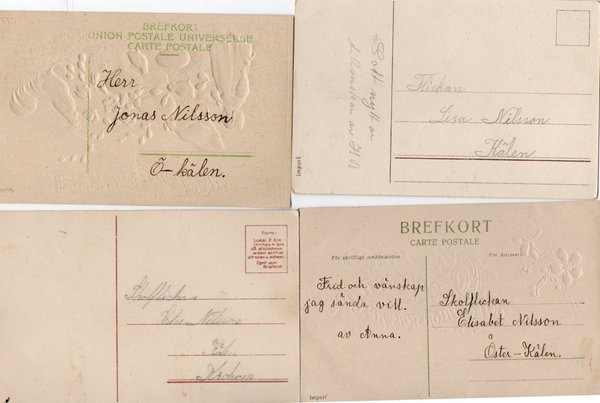 BREFKORT
UNION POSTALE UNIVERSELLE
CARTE POSTALE
Herr
Jonas Nilsson
Ö-kälen.
Gott nytt år
tillönskas av H N
Flickan
Lisa Nilsson
Kälen
Import
Porto:
Lokal 2 öre
Skolflickan
Nilsson
BREFKORT
CARTE POSTALE
För skriftliga meddelanden.
För Adressen:
Frid och vänskap
jag sända vill.
av Anna.
Skolflickan
Elisabet Nilsson
å
Öster-Kälen.
Import